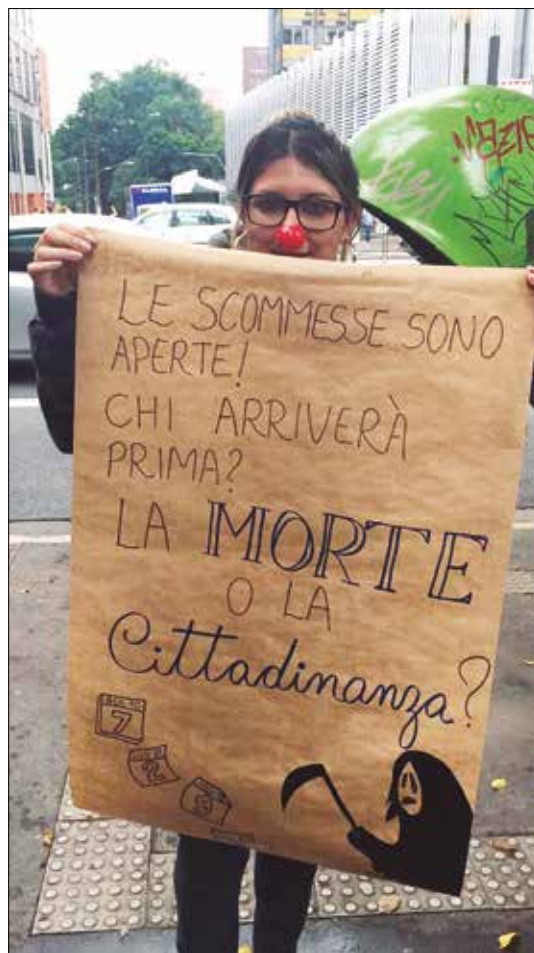 LE SCOMMESSE SONO
APERTE!
CHI ARRIVERÀ
PRIMA?
LA MORTE
O LA
Cittadinanza?
7
2